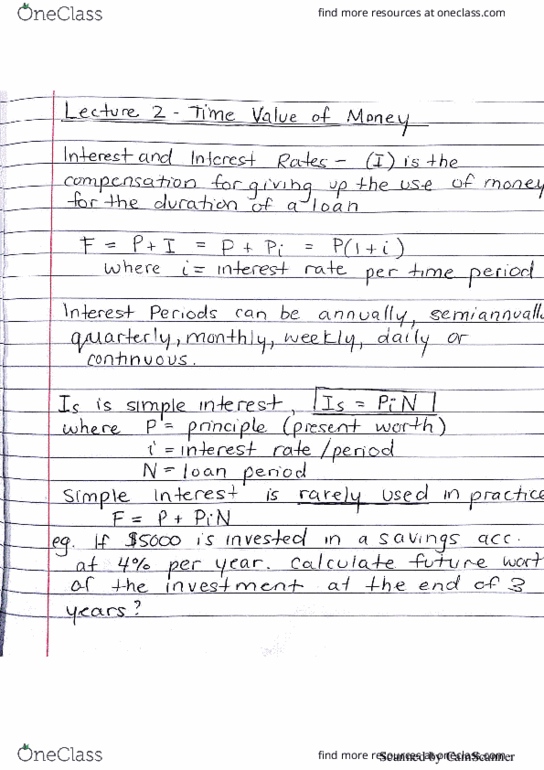 OneClass
find more resources at oneclass.com
Lecture 2 - Time Value of Money
Interest and Interest Rates - (I) is the
compensation for giving up the use of money
for the duration of a loan
F = P + I = P + Pi = P(1 + i)
where i = interest rate per time period
Interest Periods can be annually, semiannually
quarterly, monthly, weekly, daily or
continuous.
Is is simple interest, Is = PiN
where P = principle (present worth)
i = interest rate/period
N = loan period
Simple interest is rarely used in practice
F = P + PiN
eg. If $5000 is invested in a savings acc.
at 4% per year. Calculate future wort
of the investment at the end of 3
years?
OneClass
find more resources at oneclass.com
Scanned by CamScanner